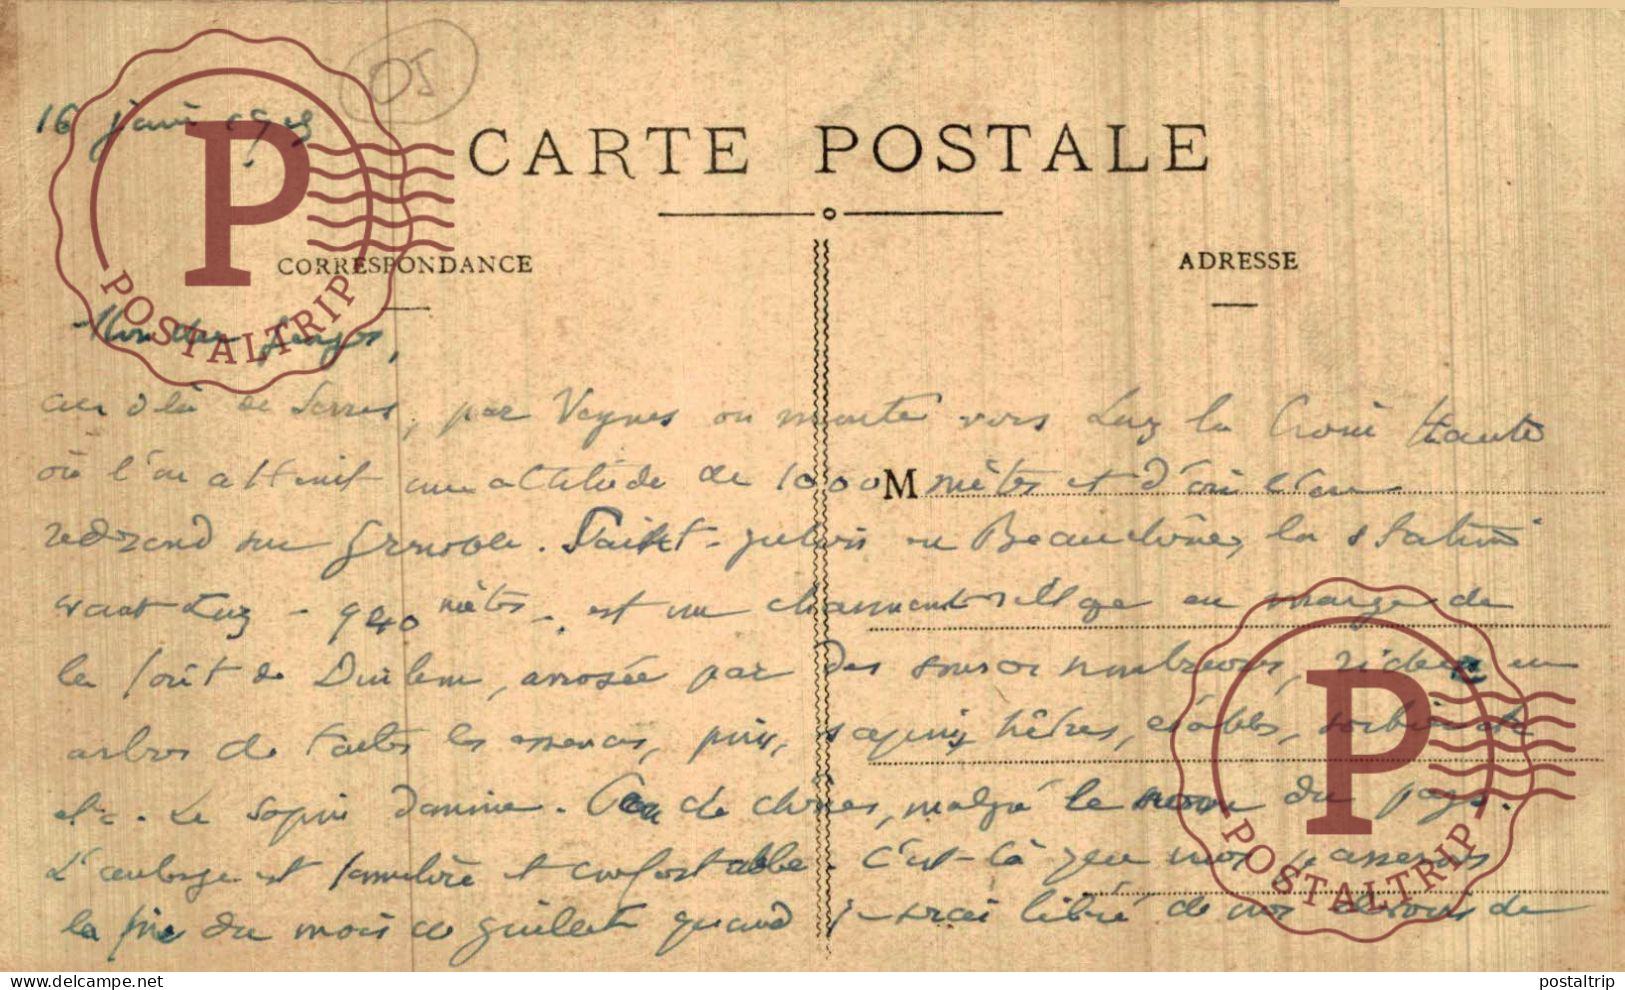 16
CARTE POSTALE
CORRESPONDANCE
ADRESSE
Mon cher
au delà de Serres, par Veynes on monte vers Luz la Croix Haute
où l'on atteint une altitude de 1000 mètres et d'où l'on
M
redescend sur Grenoble. Saint-Julien en Beauchêne, la station
avant Luz - 940 mètres -, est un charmant village en marge de
la forêt de Durbon, arrosée par des nombreuses, riche en
arbres de toutes les essences, pins, sapins, hêtres, érables,
etc. Le sapin domine. de chênes, malgré le nom du pays.
L'auberge est et confortable. C'est là que nous passerons
la fin du mois de juillet quand je serai libéré de mes devoirs de
P
POSTALTRIP
P
POSTALTRIP
https://www.delcampe.net
postaltrip